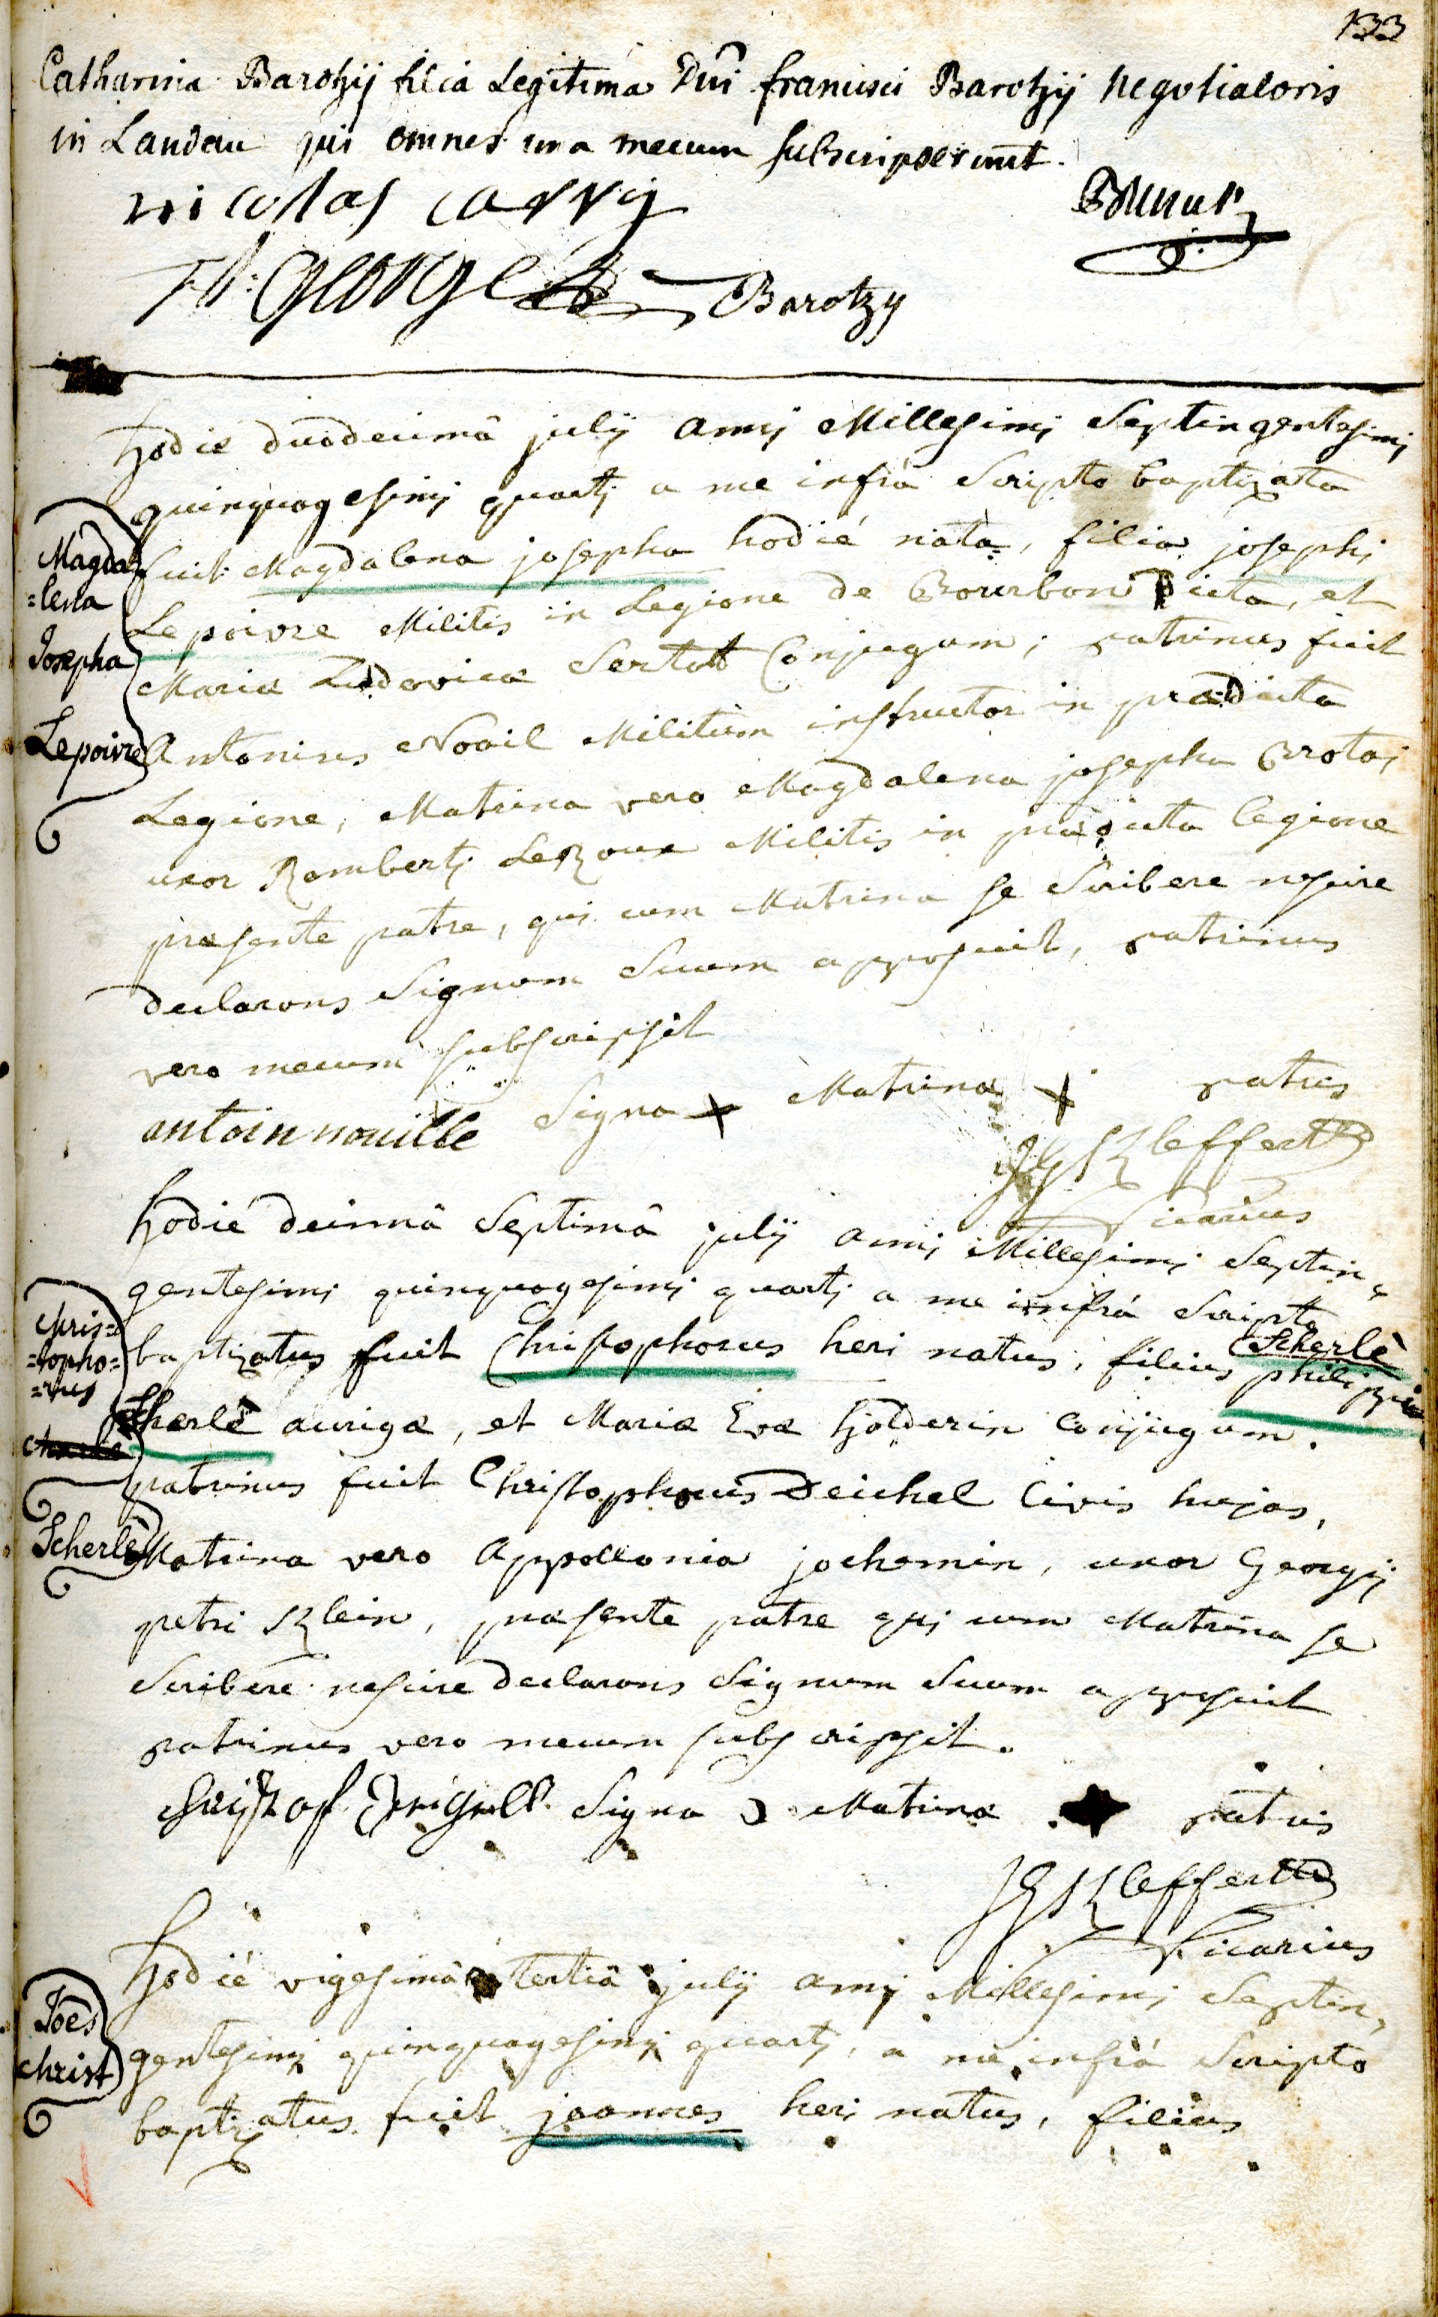 133
Catharina Barotzij filia Legitima Dni francisci Barotzij negotiatoris
in Landau qui omnes una mecum subscripserunt.
nicolas carrÿ
George Barotzy
hodie duodecimâ julij annj Millesimj Septingentesimj
quinquagesimj quartj a me infrà Scripto baptizata
fuit Magdalena josepha hodié nata, filia josephj
Lepoivre Militis in Legione de Bourbon Dicta, et
Mariæ Ludovicæ Sertot Conjugum; patrinus fuit
Antonius Noail Militum instructor in prædicta
Legione, Matrina vero Magdalena josepha Brotaj
uxor Rombertj LeRoux Militis in prædicta legione
præsente patre, qui cum Matrina se Scribere nescire
declarans Signum Suum apposuit, patrinus
vero mecum subscripsit
antoin nouille Signa x Matrinæ x patris
JGKleffert
Vicarius
Magda
=lena
Josepha
Lepoivre
hodié decimâ Septimâ julij annj Millesimj Septin=
gentesimj quinquagesimj quartj a me infrá Scripto
baptizatus fuit Christophorus heri natus, filius philippi
Scherlè
Scherlè aurigæ, et Mariæ Evæ hölderin Conjugum.
patrinus fuit Christophorus Deichel Civis hujas,
Matrina vero Appollonia jochemin, uxor Georgij
petri Klein, præsente patre qui cum Matrina se
Scribere nescire declarans Signum Suum apposuit
patrinus vero mecum subscripsit.
Signa Matrinæ patris
JGKleffert
Vicarius
Chris=
=topho=
=rus
Scherlè
hodié vigesimâ tertiâ julij annj Millesimj Septin=
gentesimj quinquagesimj quartj, a me infrá Scripto
baptizatus fuit joannes heri natus, filius
Joes
Christ